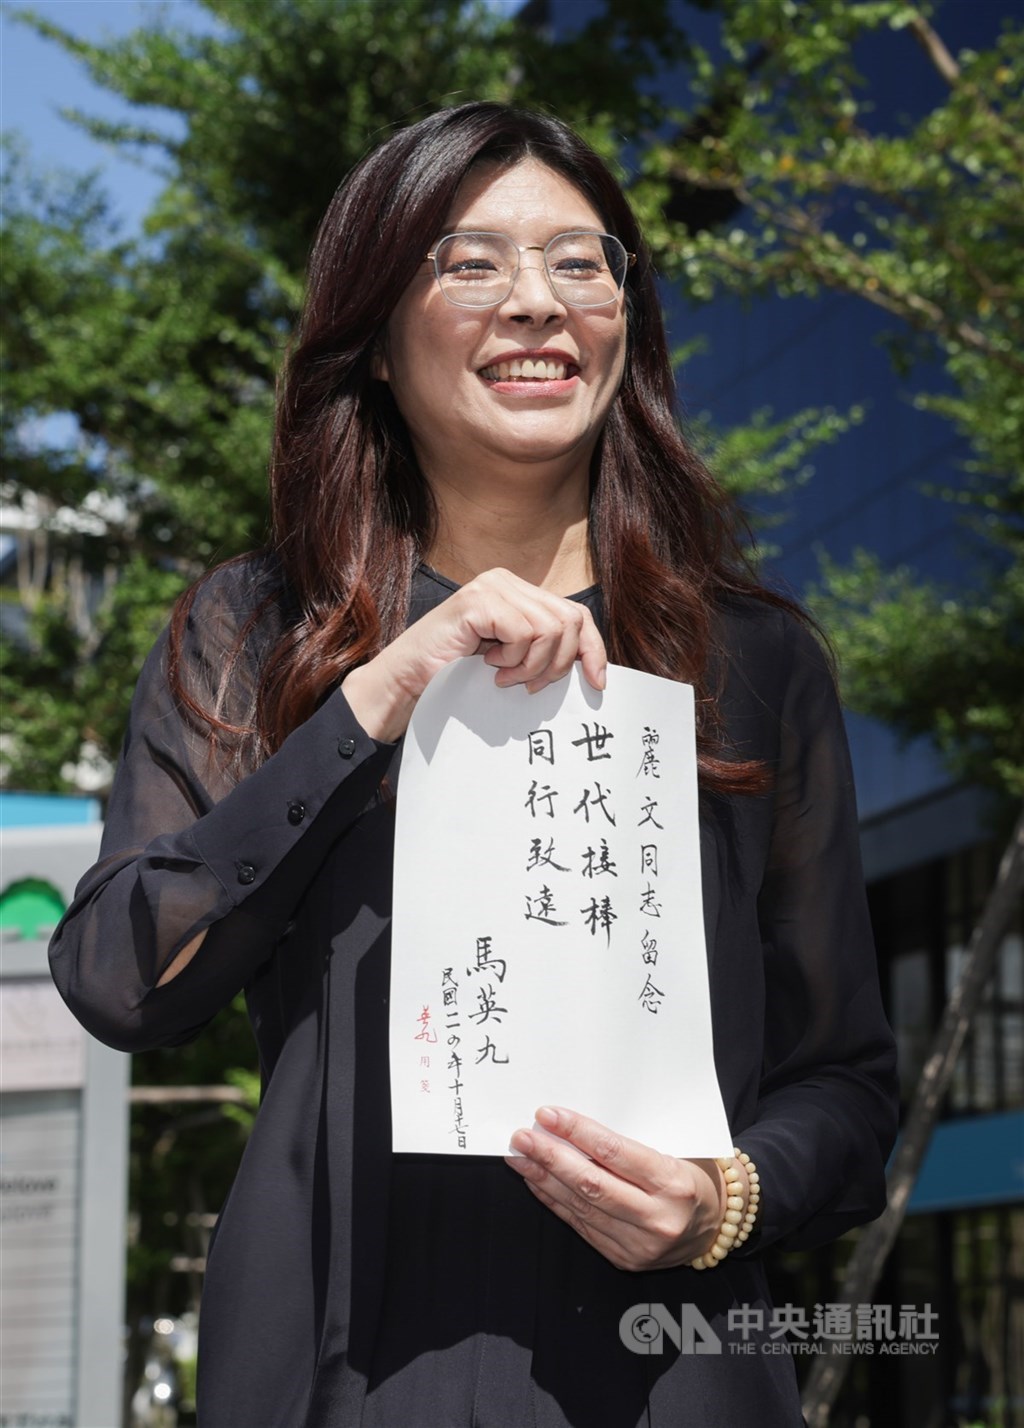 麗文同志留念
世代接棒
同行致遠
馬英九
民國一一四年十月廿日
英九
用箋
中央通訊社
THE CENTRAL NEWS AGENCY
CNA